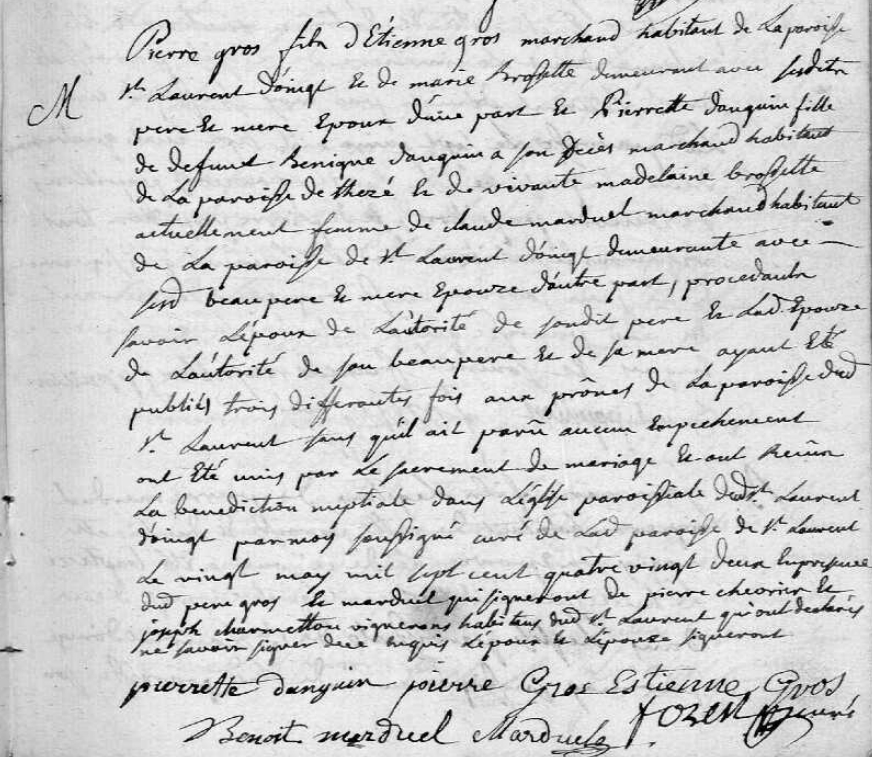 Pierre gros fils d'Etienne gros marchand habitant de La paroisse
M
St Laurent d'óingt Et de marie Brossette demeurant avec sesdits
pere Et mere Epoux d'une part Et Pierrette danguin fille
de defunct Benigne danguin a son Decès marchand habitant
de La paroisse de thezé Et de vivante madelaine brossette
actuellement femme de claude marduel marchand habitant
de La paroisse de St Laurent d'oingt demeurante avec
sesd beau pere Et mere Epouze d'autre part, procedants
savoir L'époux de L'autorité de sondit pere Et Lad. Epouze
de L'autorité de son beau pere Et de sa mere ayant Eté
publiés trois differantes fois aux prônes de La paroisse dud
St Laurent sans qu'il ait parû aucun Empechement
ont Eté unis par Le sacrement de mariage Et ont Reçûs
La benediction nuptiale dans L'église paroissiale dud St Laurent
d'oingt par moy soussigné curé de Lad paroisse de St Laurent
Le vingt may mil sept cent quatre vingt deux En presence
dud pere gros Et marduel qui signeront de pierre chevrier Et
joseph charmetton vignerons habitans dud St Laurent qui ont declarés
ne savoir signer de ce Enquis L'époux Et L'épouze signeront
pierrette danguin pierre Gros Estienne Gros
curé
Benoit marduel Marduel